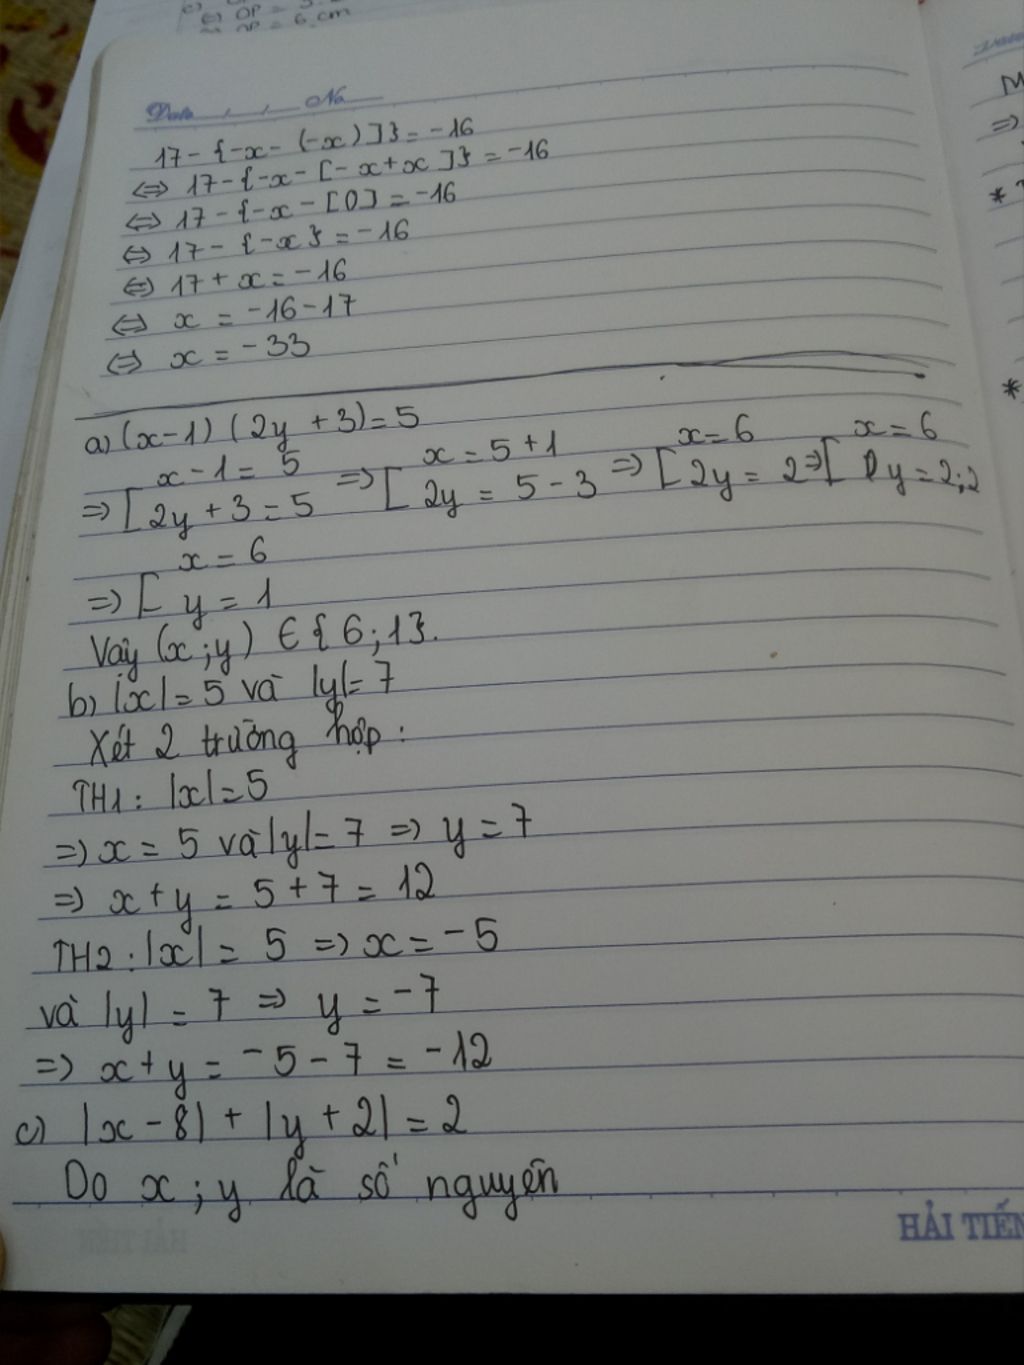 OP = 6 cm
Date No
17 - {-x - (-x)]} = -16
⇔ 17 - {-x - [-x + x]} = -16
⇔ 17 - {-x - [0] = -16
⇔ 17 - {-x} = -16
⇔ 17 + x = -16
⇔ x = -16 - 17
⇔ x = -33
a) (x-1) (2y + 3) = 5
x - 1 = 5 x = 5 + 1 x = 6 x = 6
⇒ [ 2y + 3 = 5 ⇒ [ 2y = 5 - 3 ⇒ [ 2y = 2 ⇒ [ y = 2:2
x = 6
⇒ [ y = 1
Vậy (x;y) ∈ {6;1}.
b) |x| = 5 và |y| = 7
Xét 2 trường hợp :
TH1 : |x| = 5
⇒ x = 5 và |y| = 7 ⇒ y = 7
⇒ x + y = 5 + 7 = 12
TH2 : |x| = 5 ⇒ x = -5
và |y| = 7 ⇒ y = -7
⇒ x + y = -5 - 7 = -12
c) |x - 8| + |y + 2| = 2
Do x ; y là số nguyên
HẢI TIẾN